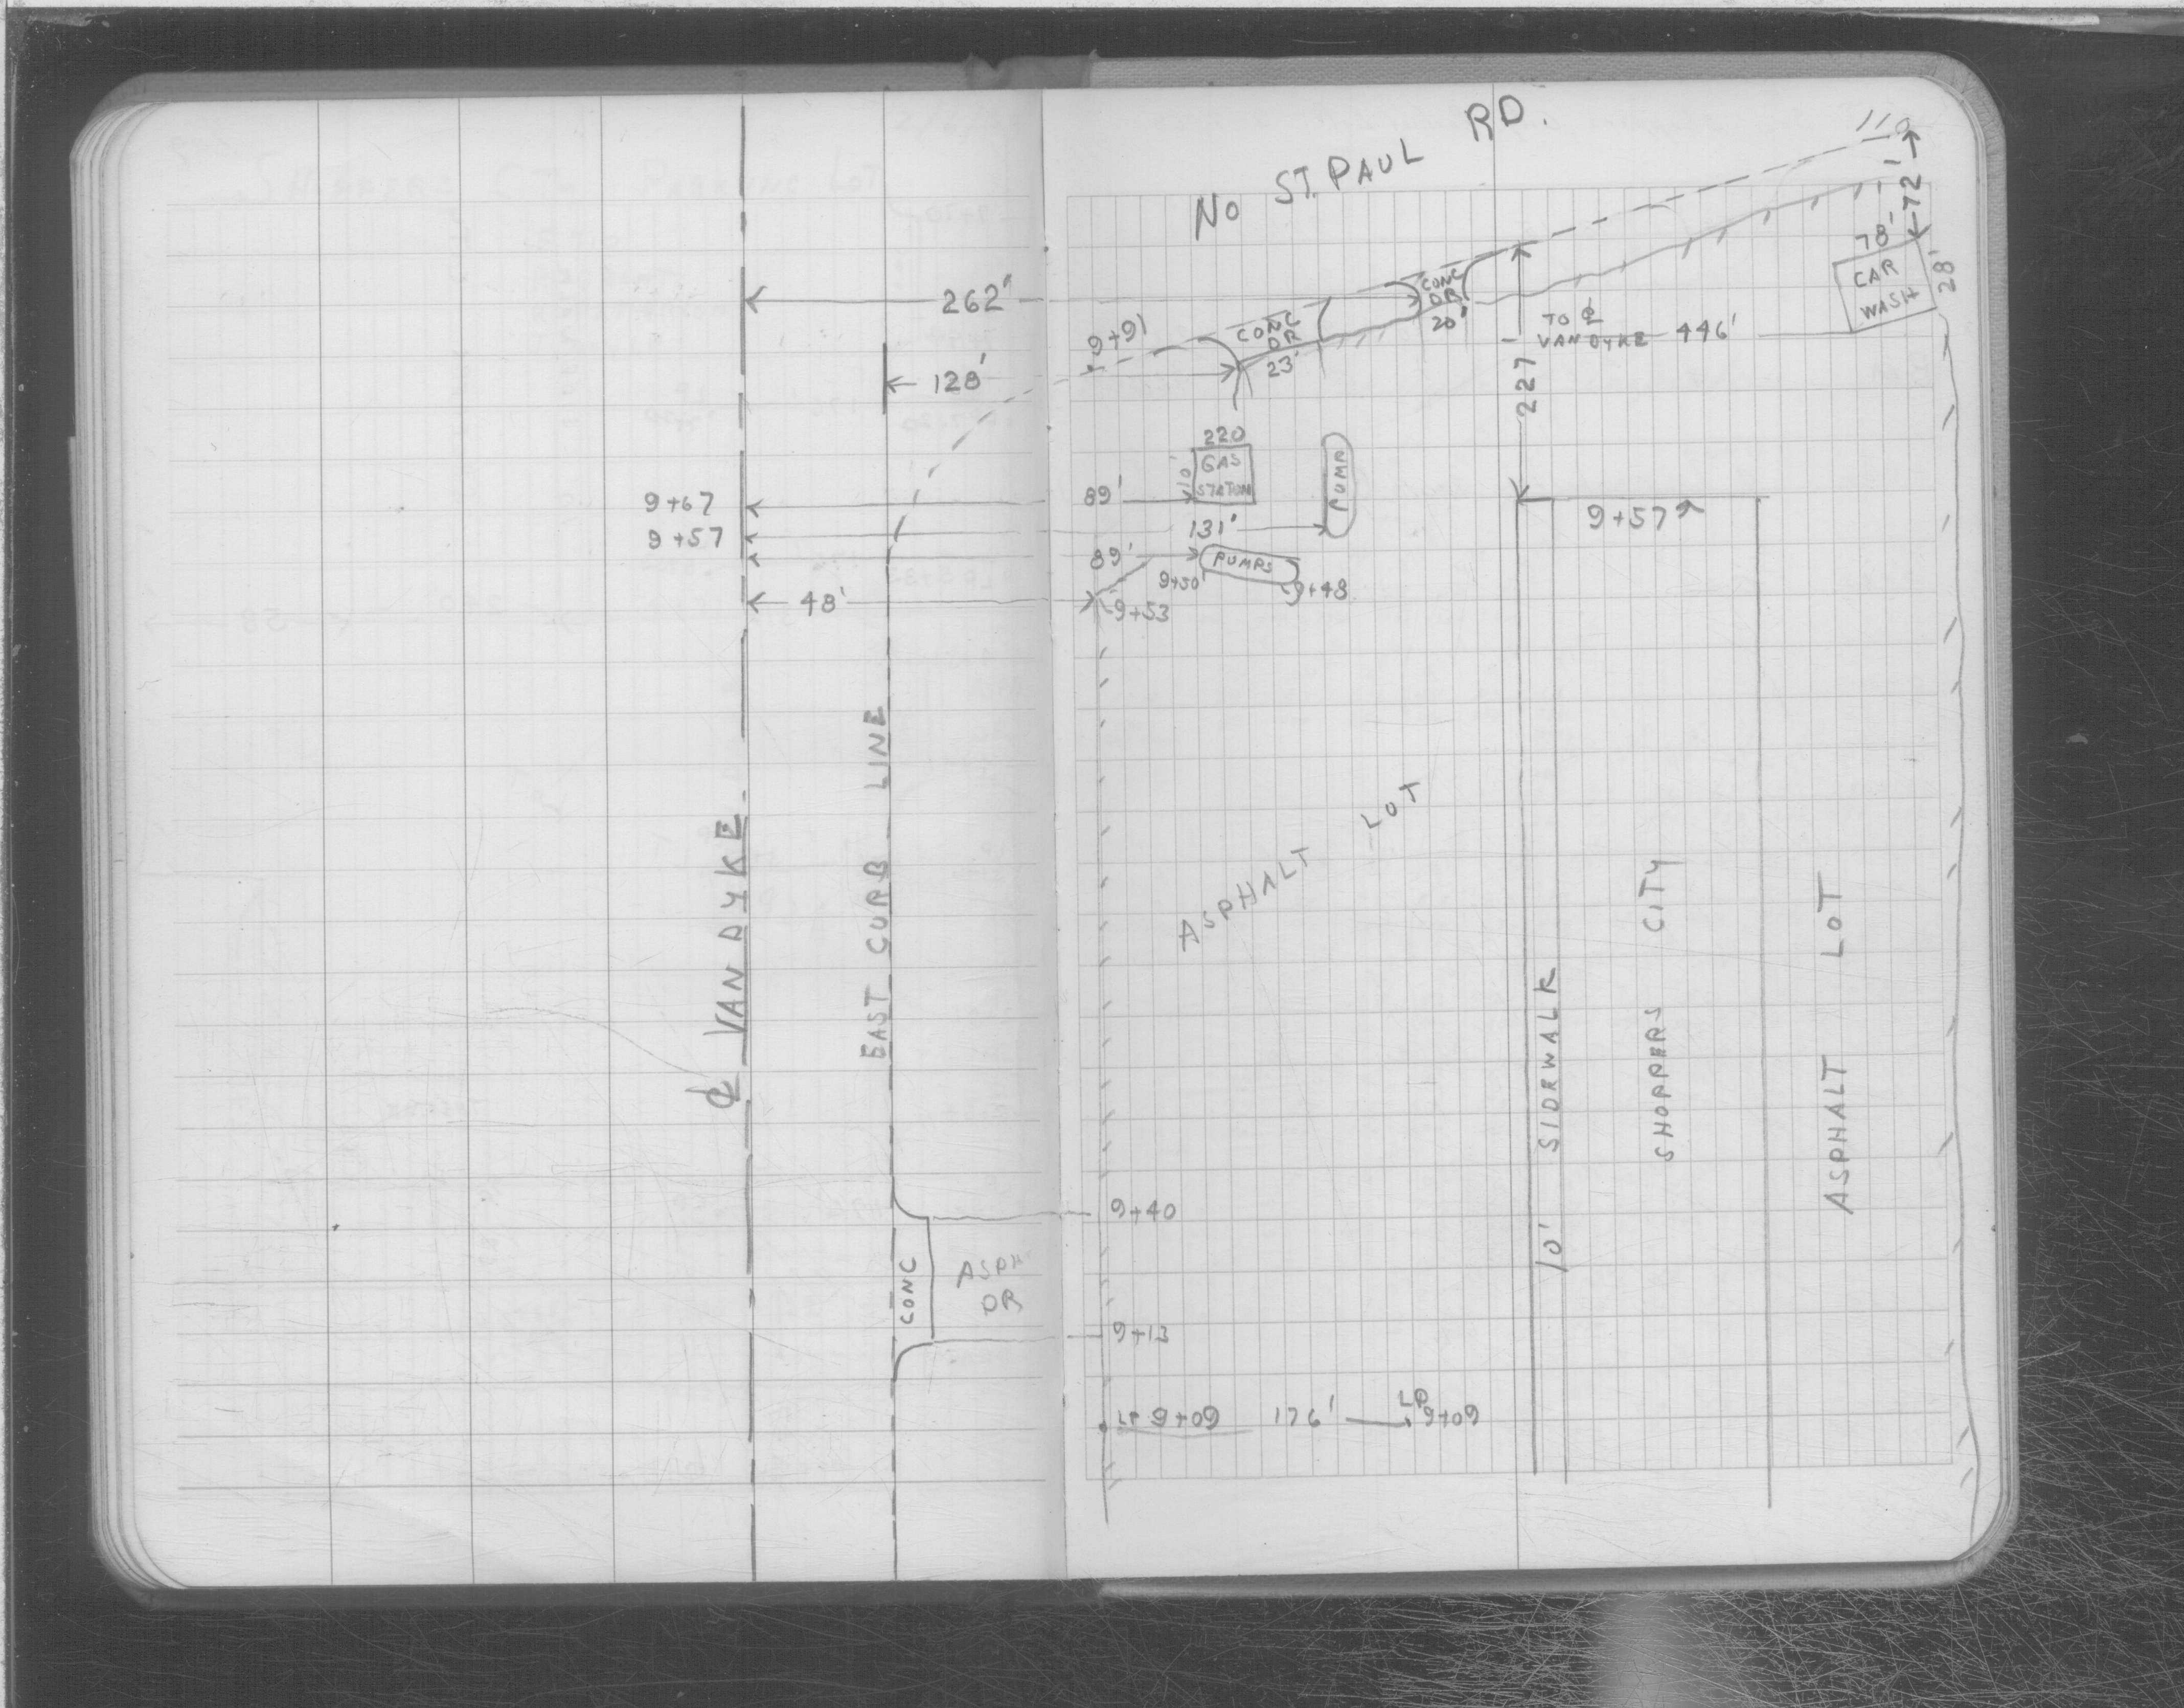 NO ST. PAUL RD.
262'
128'
9+91
CONC
DR
23'
CONC
DR
20'
227'
TO ℄
VAN DYKE 446'
72'
78'
CAR
WASH
28'
220
GAS
STATION
89'
PUMP
131'
9+67
9+57
89'
PUMPS
9+50
9+48
9+57
48'
9+53
℄ VAN DYKE
EAST CURB LINE
ASPHALT LOT
10' SIDEWALK
SHOPPERS CITY
ASPHALT LOT
9+40
CONC
ASPH
DR
9+13
LP 9+09 176' LP 9+09